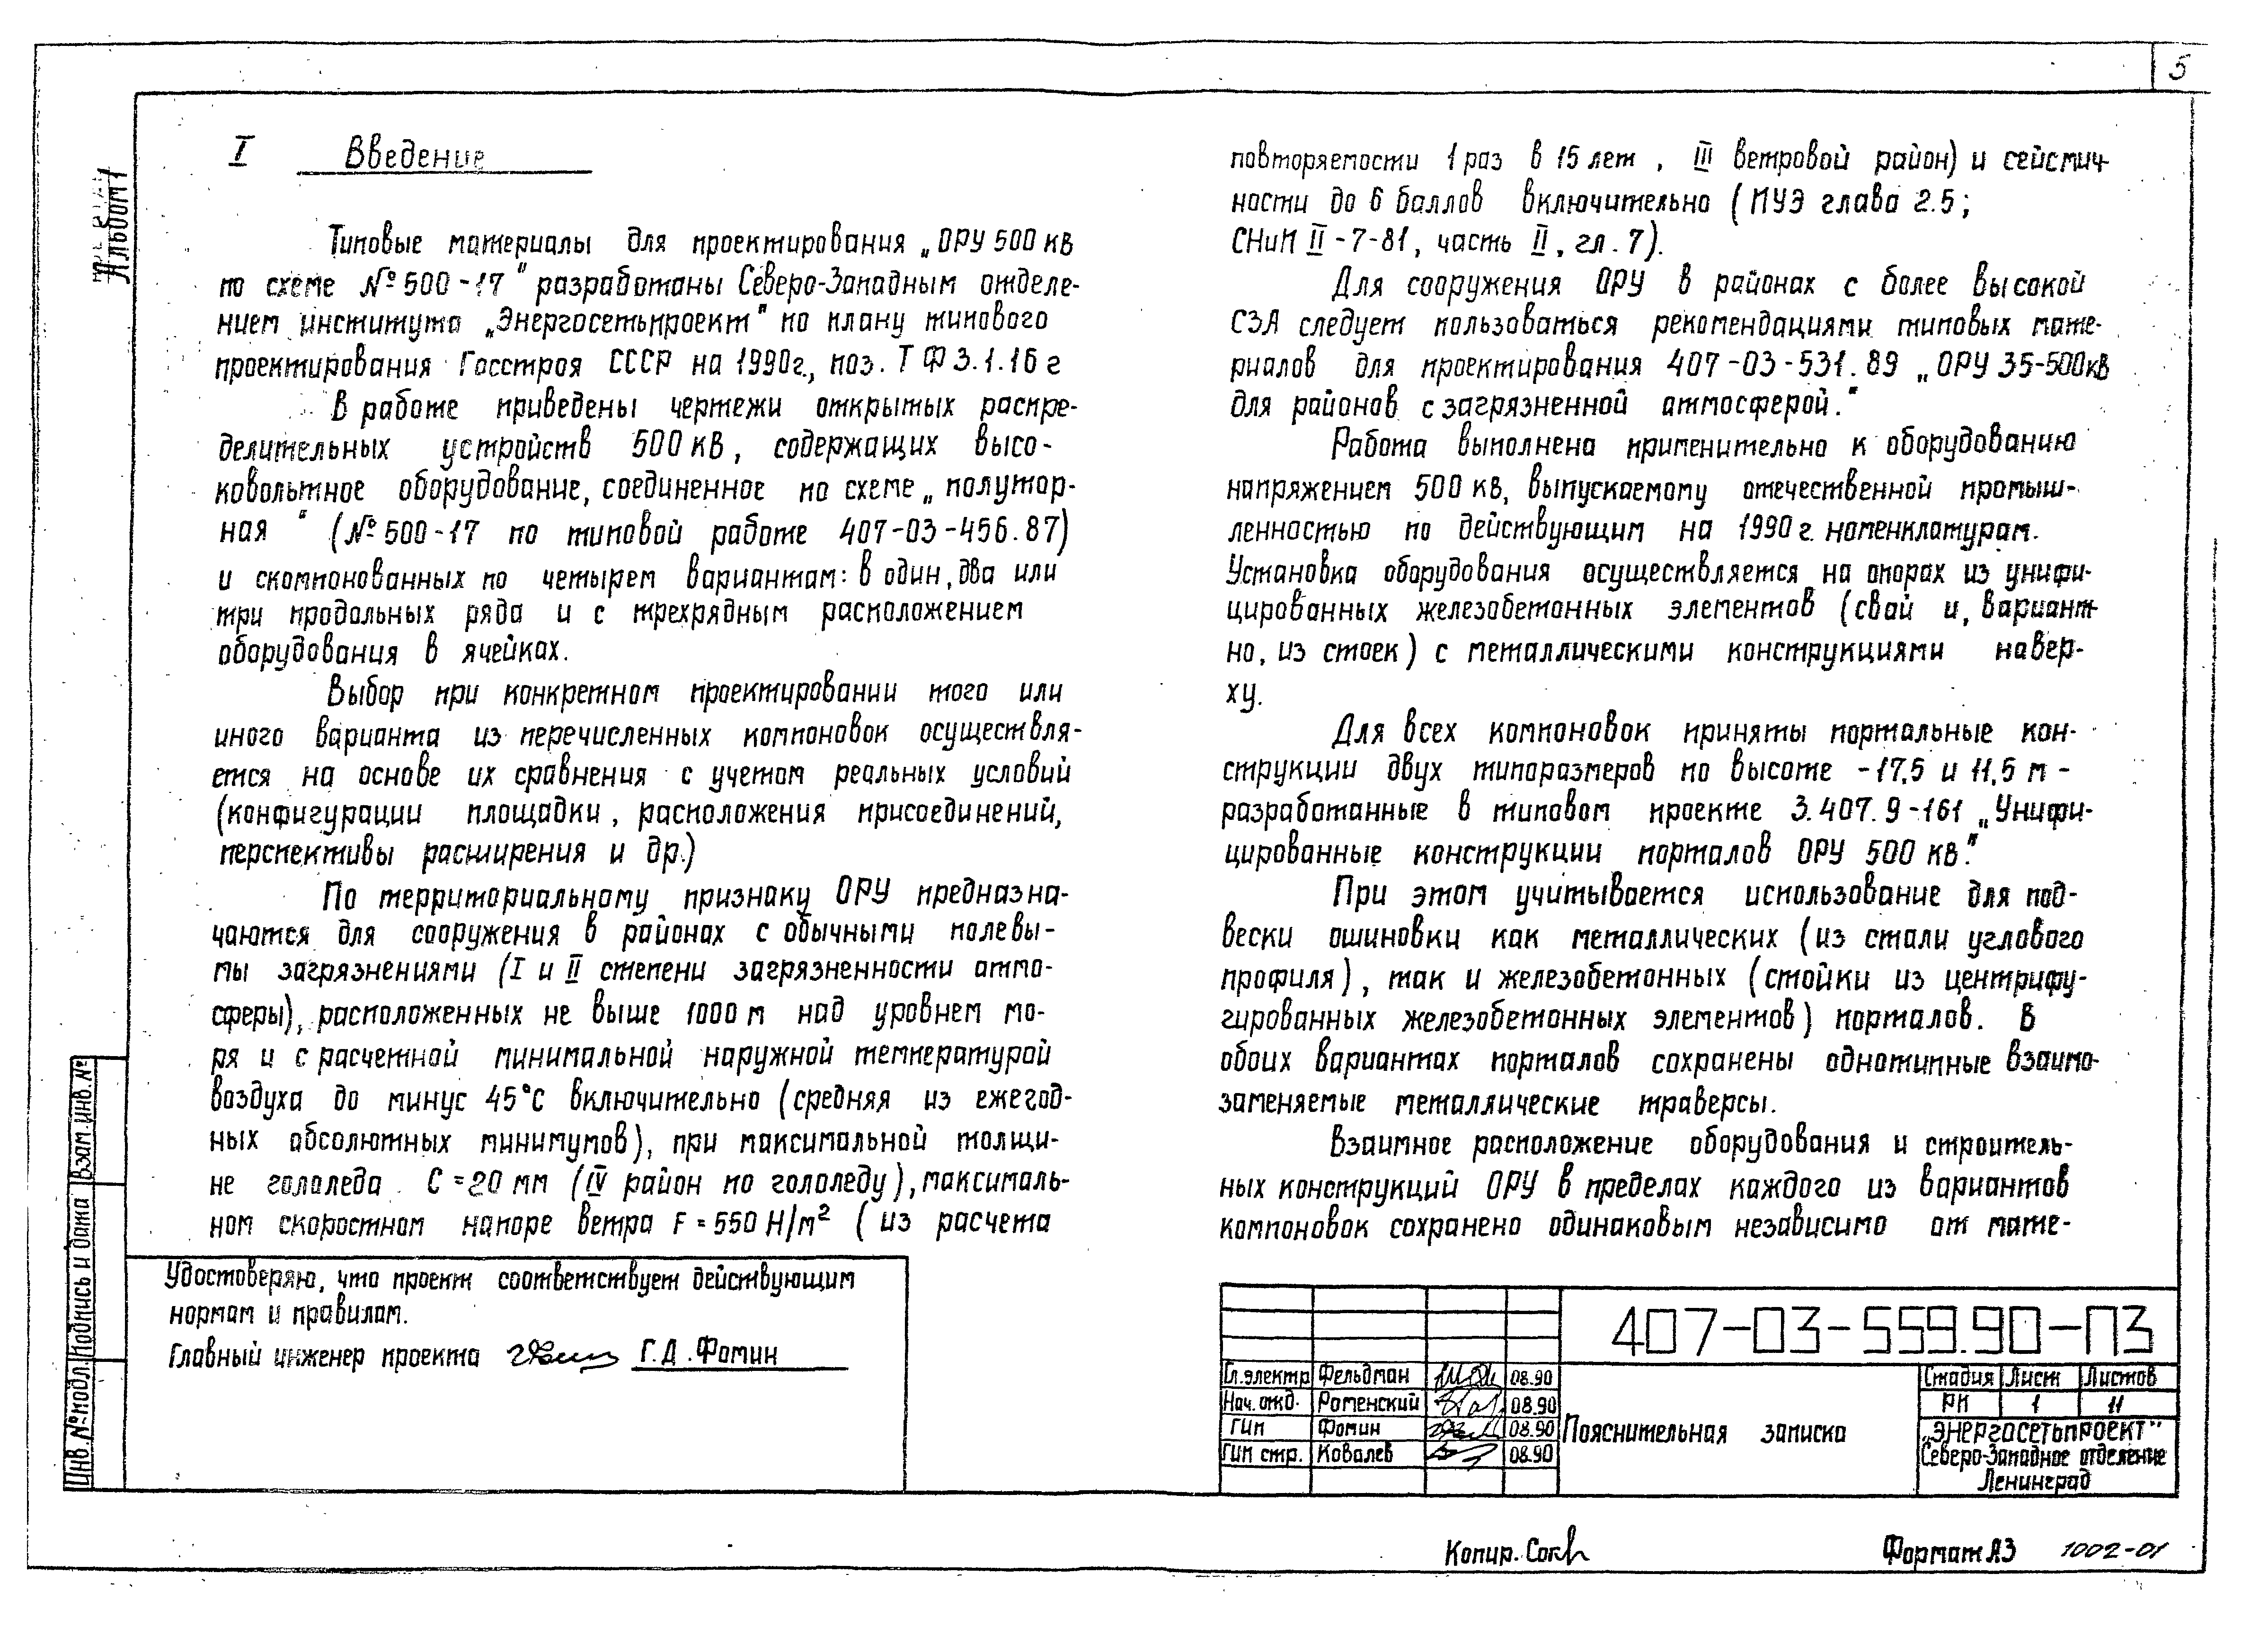 5
Альбом 1
I Введение
Типовые материалы для проектирования „ОРУ 500 кВ
по схеме № 500-17" разработаны Северо-Западным отделе-
нием института „Энергосетьпроект" по плану типового
проектирования Госстроя СССР на 1990г., поз. Т Ф 3.1.16 г
В работе приведены чертежи открытых распре-
делительных устройств 500 кВ, содержащих высо-
ковольтное оборудование, соединенное по схеме „полутор-
ная" (№ 500-17 по типовой работе 407-03-456.87)
и скомпонованных по четырем вариантам: в один, два или
три продольных ряда и с трехрядным расположением
оборудования в ячейках.
Выбор при конкретном проектировании того или
иного варианта из перечисленных компоновок осуществля-
ется на основе их сравнения с учетом реальных условий
(конфигурации площадки, расположения присоединений,
перспективы расширения и др.)
По территориальному признаку ОРУ предназна-
чаются для сооружения в районах с обычными полевы-
мы загрязнениями (I и II степени загрязненности атмо-
сферы), расположенных не выше 1000 м над уровнем мо-
ря и с расчетной минимальной наружной температурой
воздуха до минус 45°С включительно (средняя из ежегод-
ных абсолютных минимумов), при максимальной толщи-
не гололеда С = 20 мм (IV район по гололеду), максималь-
ном скоростном напоре ветра F = 550 Н/м² (из расчета
повторяемости 1 раз в 15 лет, III ветровой район) и сейсмич-
ности до 6 баллов включительно (ПУЭ глава 2.5;
СНиП II-7-81, часть II, гл. 7).
Для сооружения ОРУ в районах с более высокой
СЗА следует пользоваться рекомендациями типовых мате-
риалов для проектирования 407-03-531.89 „ОРУ 35-500кВ
для районов с загрязненной атмосферой."
Работа выполнена применительно к оборудованию
напряжением 500 кВ, выпускаемому отечественной промыш-
ленностью по действующим на 1990 г. номенклатурам.
Установка оборудования осуществляется на опорах из унифи-
цированных железобетонных элементов (свай и, вариант-
но, из стоек) с металлическими конструкциями навер-
ху.
Для всех компоновок приняты портальные кон-
струкции двух типоразмеров по высоте -17,5 и 11,5 м -
разработанные в типовом проекте 3.407.9-161 „Унифи-
цированные конструкции порталов ОРУ 500 кВ".
При этом учитывается использование для под-
вески ошиновки как металлических (из стали углового
профиля), так и железобетонных (стойки из центрифу-
гированных железобетонных элементов) порталов. В
обоих вариантах порталов сохранены однотипные взаимо-
заменяемые металлические траверсы.
Взаимное расположение оборудования и строитель-
ных конструкций ОРУ в пределах каждого из вариантов
компоновок сохранено одинаковым независимо от мате-
Удостоверяю, что проект соответствует действующим
нормам и правилам.
Главный инженер проекта Г.Д. Фомин
Инв. № подл. Подпись и дата Взам. инв. №
407-03-559.90-ПЗ
Гл.электр Фельдман 08.90
Нач. отд. Роменский 08.90
ГИП Фомин 08.90
ГИП стр. Ковалев 08.90
Пояснительная записка
Стадия Лист Листов
РП 1 11
„ЭНЕРГОСЕТЬПРОЕКТ"
Северо-Западное отделение
Ленинград
Копир.
Формат А3 1002-01